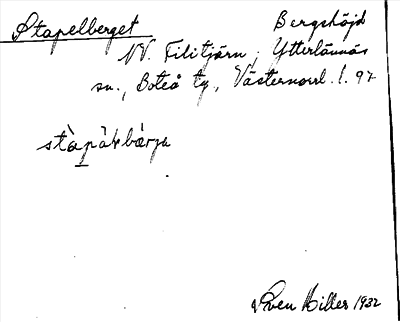 Stapelberget Bergshöjd
NV. Filitjärn, Ytterlännäs
sn., Boteå tg., Västernorrl. l. 97
stàpàkbærja
Sven Hiller 1932